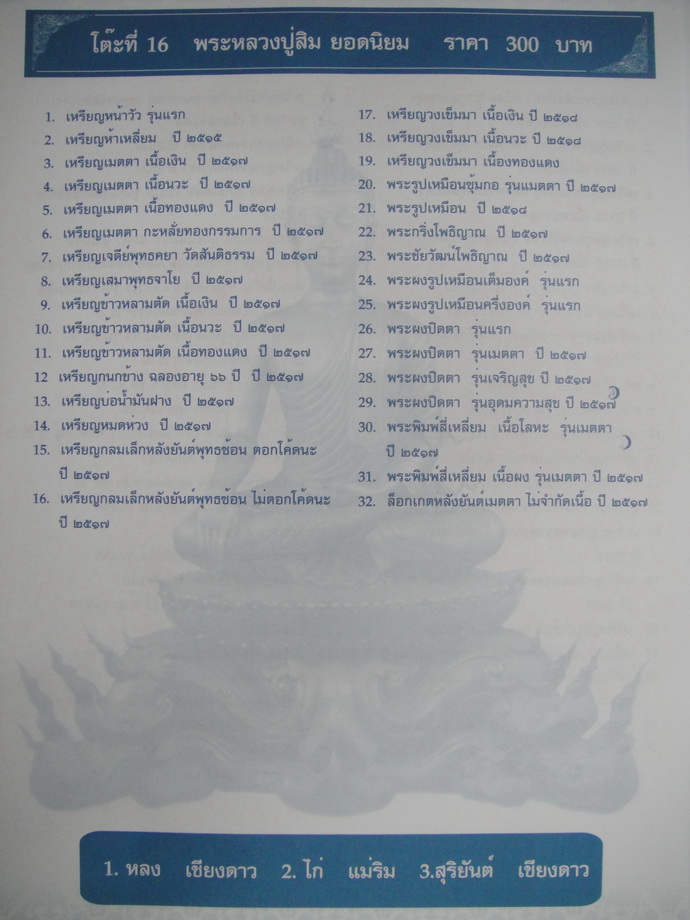 โต๊ะที่ 16 พระหลวงปู่สิม ยอดนิยม ราคา 300 บาท
1. เหรียญหน้าวัว รุ่นแรก
2. เหรียญห้าเหลี่ยม ปี ๒๕๑๕
3. เหรียญเมตตา เนื้อเงิน ปี ๒๕๑๗
4. เหรียญเมตตา เนื้อนวะ ปี ๒๕๑๗
5. เหรียญเมตตา เนื้อทองแดง ปี ๒๕๑๗
6. เหรียญเมตตา กะหลั่ยทองกรรมการ ปี ๒๕๑๗
7. เหรียญเจดีย์พุทธคยา วัดสันติธรรม ปี ๒๕๑๗
8. เหรียญเสมาพุทธจาโย ปี ๒๕๑๗
9. เหรียญข้าวหลามตัด เนื้อเงิน ปี ๒๕๑๗
10. เหรียญข้าวหลามตัด เนื้อนวะ ปี ๒๕๑๗
11. เหรียญข้าวหลามตัด เนื้อทองแดง ปี ๒๕๑๗
12 เหรียญกนกข้าง ฉลองอายุ ๖๖ ปี ปี ๒๕๑๗
13. เหรียญบ่อน้ำมันฝาง ปี ๒๕๑๗
14. เหรียญหมดห่วง ปี ๒๕๑๗
15. เหรียญกลมเล็กหลังยันต์พุทธซ้อน ตอกโค้ดนะ
ปี ๒๕๑๗
16. เหรียญกลมเล็กหลังยันต์พุทธซ้อน ไม่ตอกโค้ดนะ
ปี ๒๕๑๗
17. เหรียญวงเข็มมา เนื้อเงิน ปี ๒๕๑๘
18. เหรียญวงเข็มมา เนื้อนวะ ปี ๒๕๑๘
19. เหรียญวงเข็มมา เนื้องทองแดง
20. พระรูปเหมือนซุ้มกอ รุ่นแมตตา ปี ๒๕๑๗
21. พระรูปเหมือน ปี ๒๕๑๘
22. พระกริ่งโพธิญาณ ปี ๒๕๑๗
23. พระชัยวัฒน์โพธิญาณ ปี ๒๕๑๗
24. พระผงรูปเหมือนเต็มองค์ รุ่นแรก
25. พระผงรูปเหมือนครึ่งองค์ รุ่นแรก
26. พระผงปิดตา รุ่นแรก
27. พระผงปิดตา รุ่นเมตตา ปี ๒๕๑๗
28. พระผงปิดตา รุ่นเจริญสุข ปี ๒๕๑๗
29. พระผงปิดตา รุ่นอุดมความสุข ปี ๒๕๑๗
30. พระพิมพ์สี่เหลี่ยม เนื้อโลหะ รุ่นเมตตา
ปี ๒๕๑๗
31. พระพิมพ์สี่เหลี่ยม เนื้อผง รุ่นเมตตา ปี ๒๕๑๗
32. ล็อกเกตหลังยันต์เมตตา ไม่จำกัดเนื้อ ปี ๒๕๑๗
1. หลง เชียงดาว 2. ไก่ แม่ริม 3.สุริยันต์ เชียงดาว